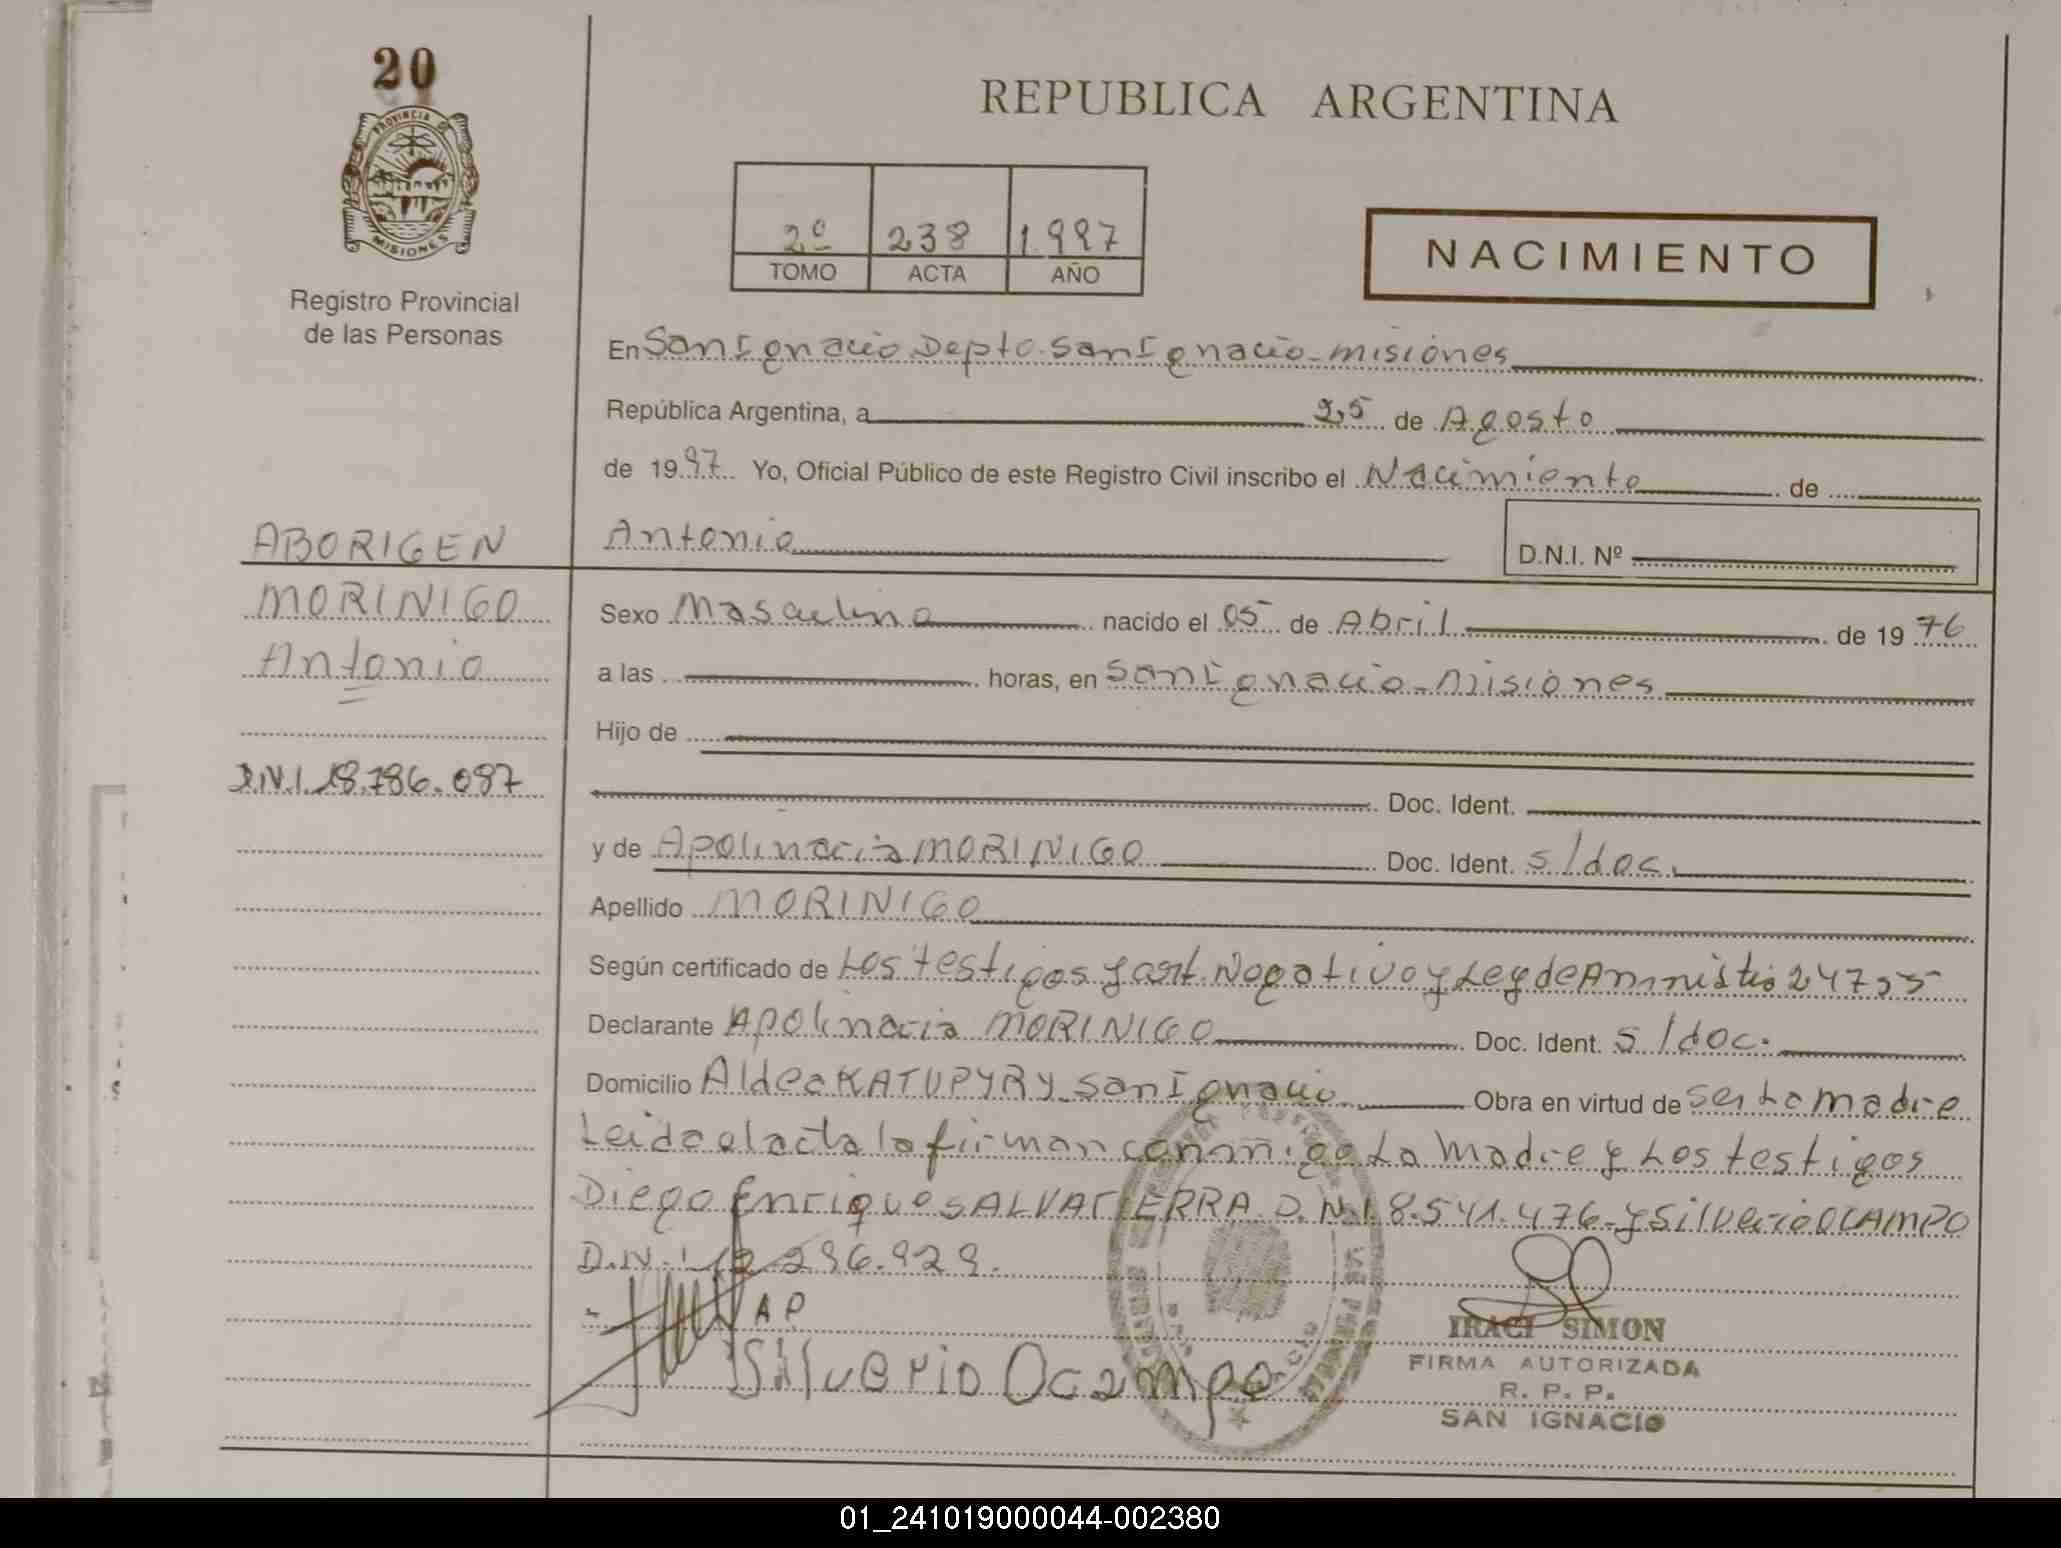 20
PROVINCIA DE
MISIONES
Registro Provincial
de las Personas
REPUBLICA ARGENTINA
2º 238 1.997
TOMO ACTA AÑO
NACIMIENTO
En San Ignacio Depto. San Ignacio - Misiones
República Argentina, a 25 de Agosto
de 1997 Yo, Oficial Público de este Registro Civil inscribo el Nacimiento de
ABORIGEN
Antonio D.N.I. Nº
MORINIGO
Antonio
D.N.I. 18.786.097
Sexo Masculino nacido el 05 de Abril de 1976
a las horas, en San Ignacio - Misiones
Hijo de
Doc. Ident.
y de Apolinaria MORINIGO Doc. Ident. s/doc.
Apellido MORINIGO
Según certificado de Los testigos y cert. Negativo y Ley de Amnistia 24755
Declarante Apolinaria MORINIGO Doc. Ident. s/doc.
Domicilio Aldea KATUPYRY San Ignacio Obra en virtud de ser La madre
Leida el acta la firman conmigo La Madre y Los testigos
Diego Enrique SALVATIERRA D.N.I. 8.541.476 - y Silverio OCAMPO
D.N.I. 12.296.929.
AP
Silverio Ocampo
IRACI SIMON
FIRMA AUTORIZADA
R. P. P.
SAN IGNACIO
01_241019000044-002380